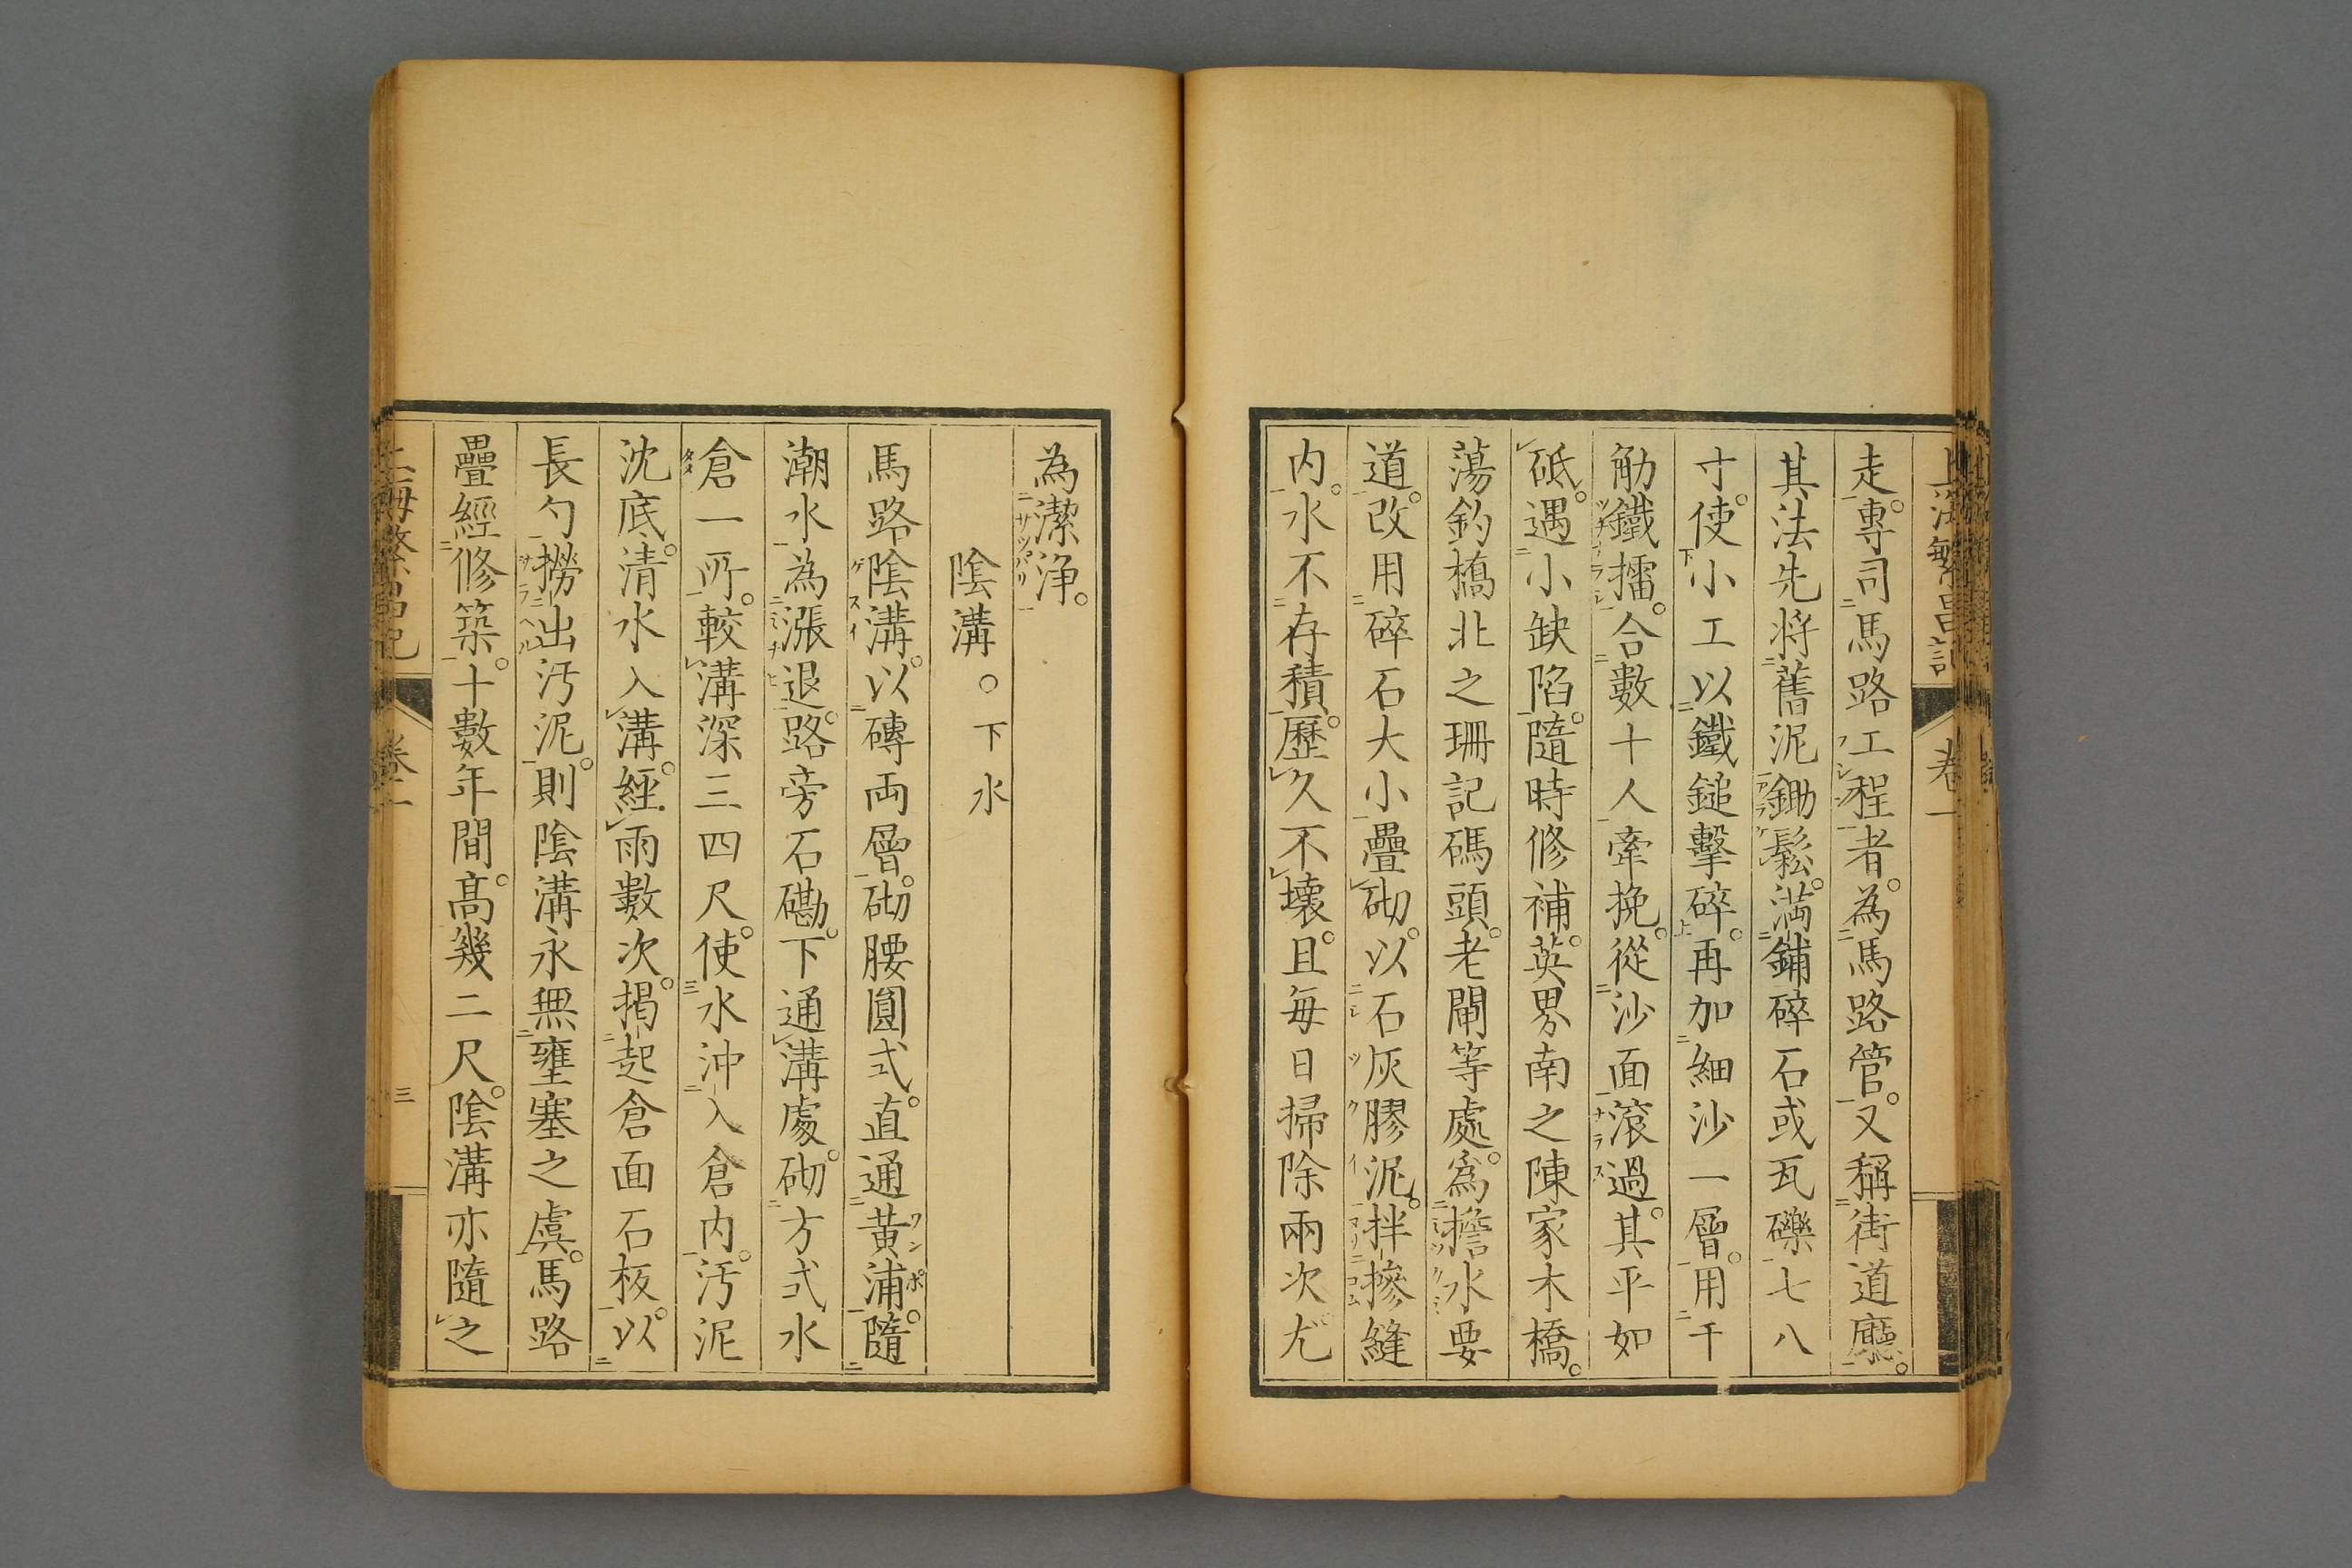 上海繁昌記 卷一
走。專司馬路工程者。為馬路管。又稱街道廳。
其法先將舊泥鋤鬆。満鋪碎石或瓦礫七八
寸。使小工以鐵鎚擊碎。再加細沙一層。用千
觔鐵擂。合數十人牽挽。從沙面滾過。其平如
砥。遇小缺陷。隨時修補。英界南之陳家木橋。
蕩鈞橋北之珊記碼頭。老閘等處。爲擔水要
道。改用碎石大小疊砌。以石灰膠泥。拌摻縫
内。水不存積。歷久不壊。且毎日掃除兩次。尤
為潔浄。
陰溝。下水
馬路陰溝。以磚両層。砌腰圓式。直通黄浦。隨
潮水為漲退。路旁石磡。下通溝處。砌方式水
倉一所。較溝深三四尺。使水沖入倉内。汚泥
沈底。清水入溝。經雨數次。揭起倉面石板。以
長勺撈出汚泥。則陰溝永無壅塞之虞。馬路
疊經修築。十數年間。高幾二尺。陰溝亦隨之
上海繁昌記 卷一 三